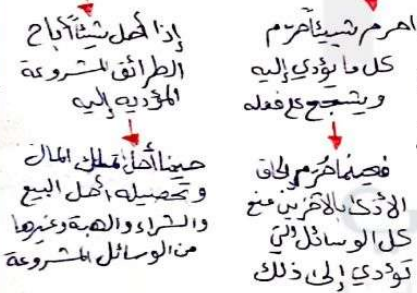 احرم شيئاً حرّم
كل ما يؤدي إليه
ويشجع على فعله
فحينما حُرّم إلحاق
الأذى بالآخرين منع
كل الوسائل التي
تؤدي إلى ذلك
إذا أحل شيئاً أباح
الطرائق المشروعة
المؤديه إليه
حينما أحل تملك المال
وتحصيله أحل البيع
والشراء والهبة وغيرها
من الوسائل المشروعة